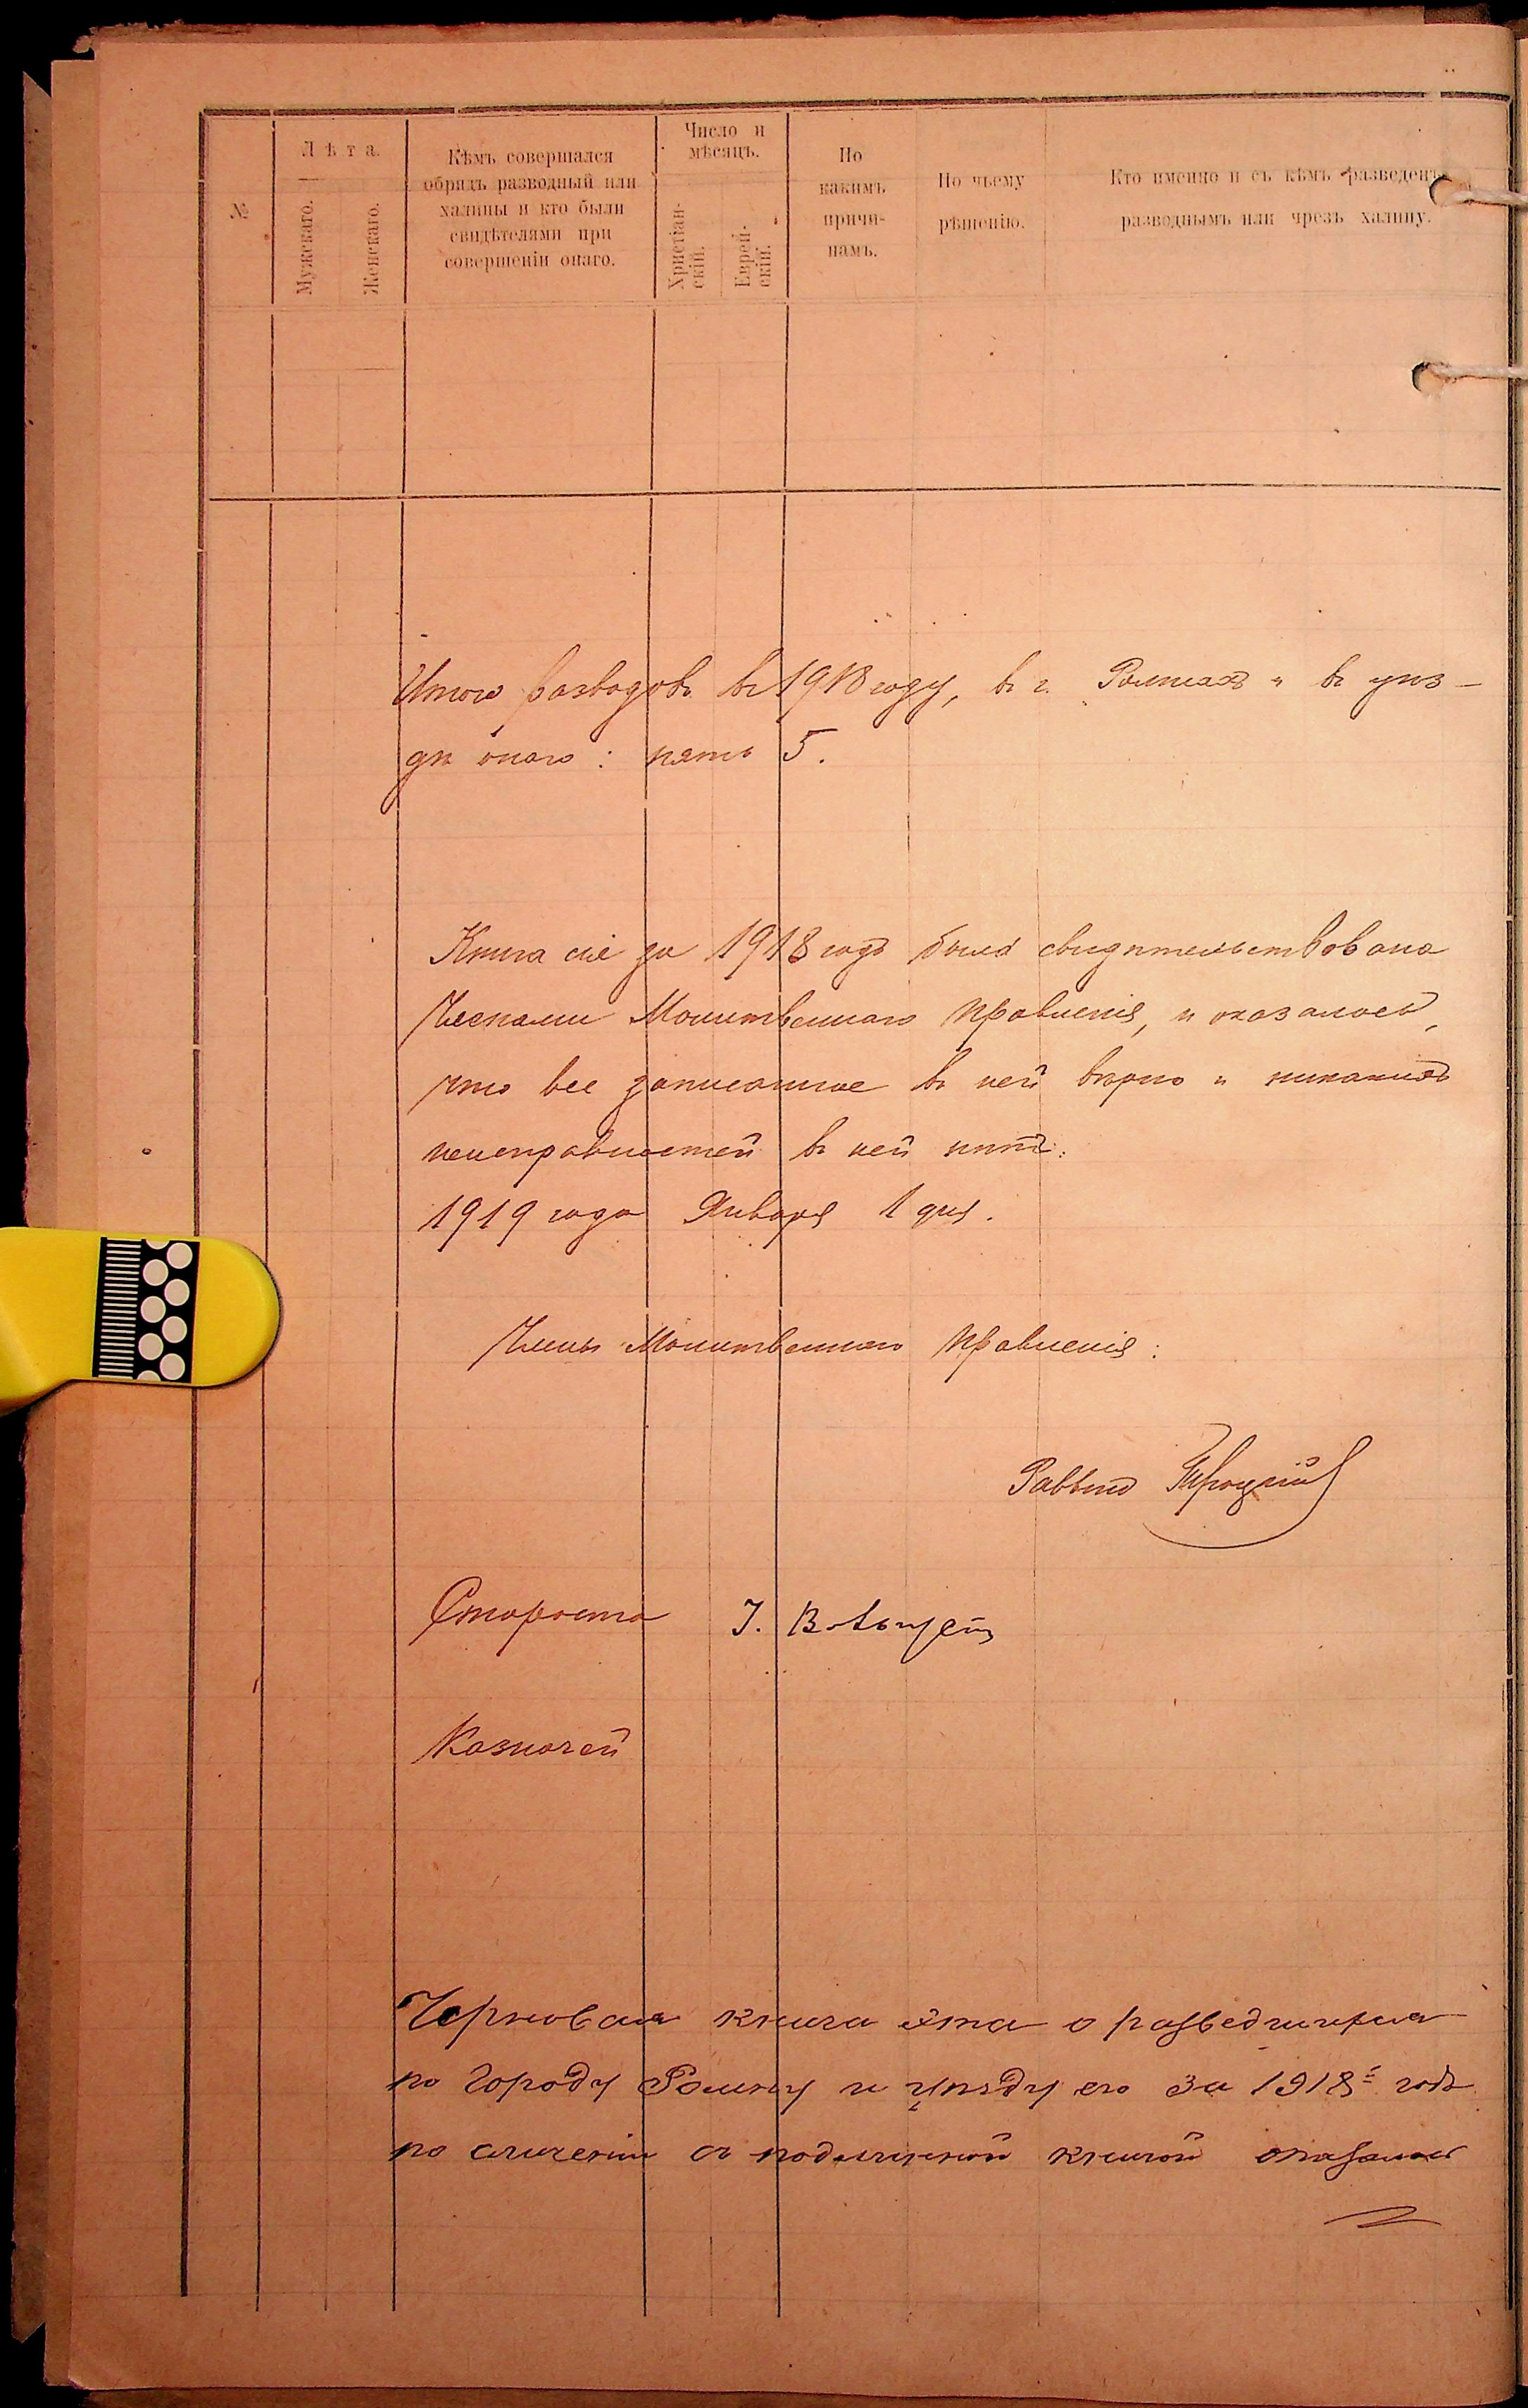 №
Лѣта.
Мужскаго.
Женскаго.
Кѣмъ совершался
обрядъ разводный или
халицы и кто были
свидѣтелями при
совершеніи онаго.
Число и
мѣсяцъ.
Христіан-
скій.
Еврей-
скій.
По
какимъ
причи-
намъ.
По чьему
рѣшенію.
Кто именно и съ кѣмъ разведенъ
разводнымъ или чрезъ халицу.
Итого разводовъ въ 1918 году, въ г. Ромнахъ и въ уѣз-
дѣ онаго: пять 5.
Книга сіе за 1918 годъ была свидѣтельствована
Членами Молитвеннаго Правленія, и оказалось,
что все записанное въ ней вѣрно и никакихъ
неисправностей въ ней нѣтъ:
1919 года Января 1 дня.
Члены Молитвеннаго Правленія:
Раввинъ
Староста І.
Казначей
Черновая книга эта о разведшихся
по городу Ромну и уѣзду его за 1918й годъ
по сличеніи съ подлинной книгой оказалась